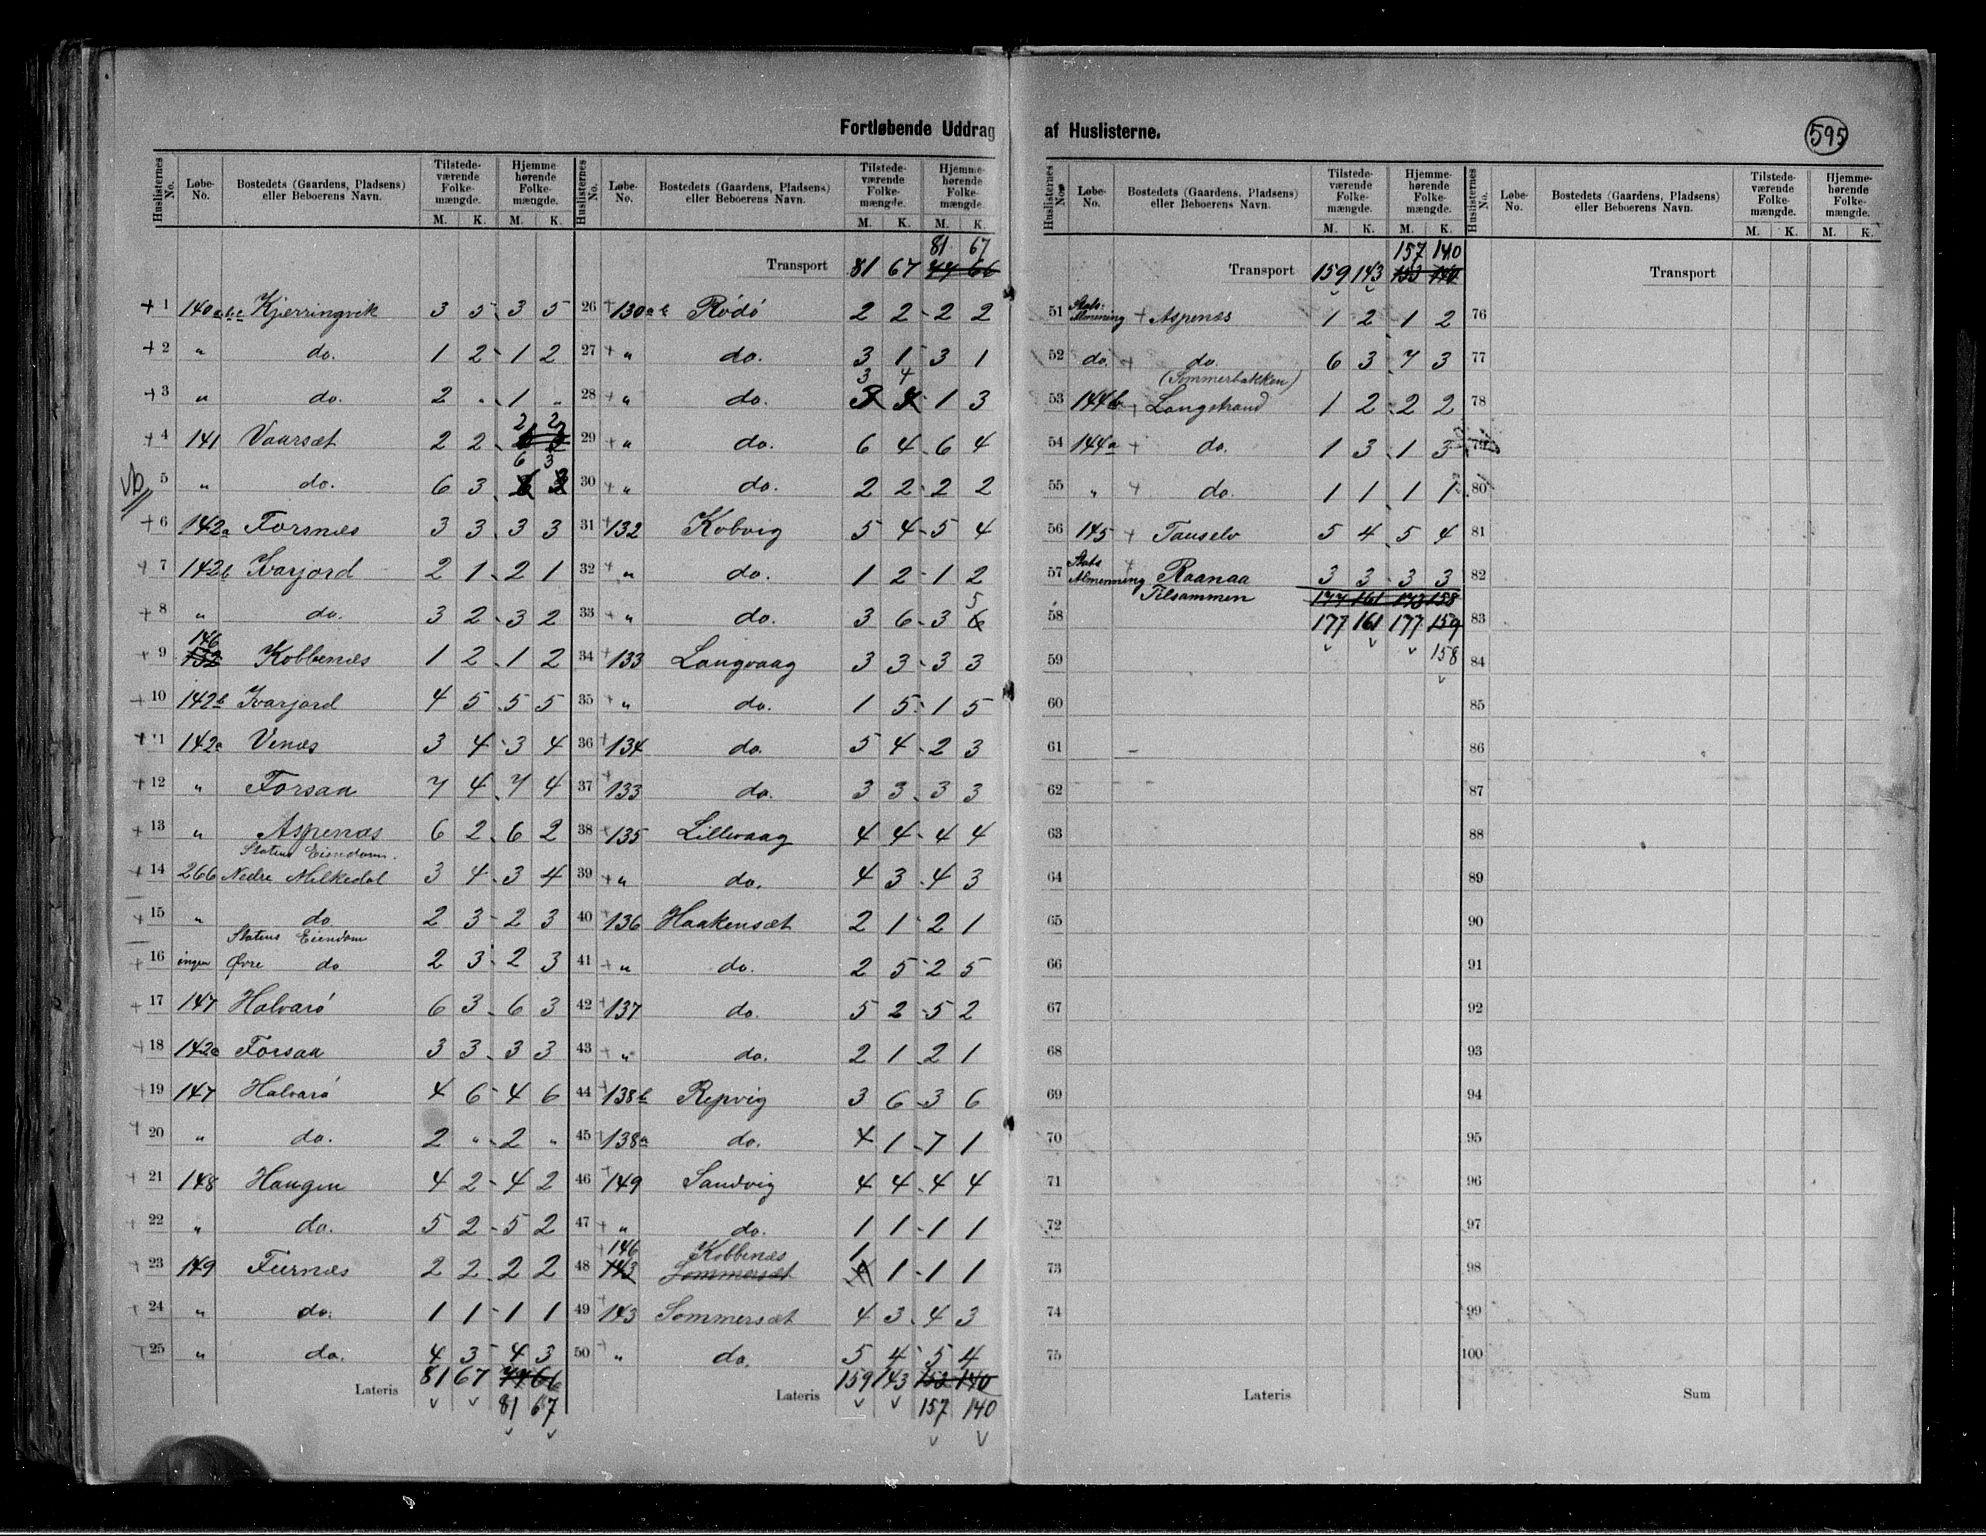 Fortløbende Uddrag af Huslisterne.
595
Huslisternes No. Løbe-No. Bostedets (Gaardens, Pladsens) eller Beboerens Navn. Tilstedeværende Folkemængde. M. K. Hjemmehørende Folkemængde. M. K.
+ 1 140abc Kjerringvik 3 5 3 5
+ 2 " do. 1 2 1 2
+ 3 " do. 2 " 1 "
+ 4 141 Vaarsæt 2 2 2 2
5 " do. 6 3 6 3
+ 6 142a Forsnæs 3 3 3 3
+ 7 142b Ivarjord 2 1 2 1
+ 8 " do. 3 2 3 2
+ 9 146 Kobbenæs 1 2 1 2
+ 10 142b Ivarjord 4 5 5 5
+ 11 142a Venæs 3 4 3 4
+ 12 " Forsaa 7 4 7 4
+ 13 " Aspenæs 6 2 6 2
Statens Eiendom.
+ 14 266 Nedre Milkedal 3 4 3 4
+ 15 " do 2 3 2 3
Statens Eiendom
+ 16 ingen Øvre do 2 3 2 3
+ 17 147 Halvarö 6 3 6 3
+ 18 142a Forsaa 3 3 3 3
+ 19 147 Halvarö 4 6 4 6
+ 20 " do. 2 " 2 "
+ 21 148 Haugen 4 2 4 2
+ 22 " do. 5 2 5 2
+ 23 149 Fiernæs 2 2 2 2
+ 24 " do. 1 1 1 1
+ 25 " do. 4 3 4 3
Lateris 81 67 74 66
81 67
Huslisternes No. Løbe-No. Bostedets (Gaardens, Pladsens) eller Beboerens Navn. Tilstedeværende Folkemængde. M. K. Hjemmehørende Folkemængde. M. K.
81 67
Transport 81 67 74 66
26 + 130ab Rödö 2 2 2 2
27 + " do. 3 1 3 1
3 4
28 + " do. 3 4 1 3
29 + " do. 6 4 6 4
30 + " do. 2 2 2 2
31 + 132 Kobvig 5 4 5 4
32 + " do. 1 2 1 2
5
33 + " do. 3 6 3 6
34 + 133 Langvaag 3 3 3 3
35 + " do. 1 5 1 5
36 + 134 do. 5 4 2 3
37 + 133 do. 3 3 3 3
38 + 135 Lillevaag 4 4 4 4
39 + " do. 4 3 4 3
40 + 136 Haakensæt 2 1 2 1
41 + " do. 2 5 2 5
42 + 137 do. 5 2 5 2
43 + " do. 2 1 2 1
44 + 138b Repvig 3 6 3 6
45 + 138a do. 4 1 7 1
46 + 149 Sandvig 4 4 4 4
47 + " do. 1 1 1 1
+ 146 Kobbenæs 1
48 143 Sommersæt 4 1 1 1
49 + 143 Sommersæt 4 3 4 3
50 + " do. 5 4 5 4
Lateris 159 143 153 140
157 140
Huslisternes No. Løbe-No. Bostedets (Gaardens, Pladsens) eller Beboerens Navn. Tilstedeværende Folkemængde. M. K. Hjemmehørende Folkemængde. M. K.
157 140
Transport 159 143 153 140
51 Stats-Almenning + Aspenæs 1 2 1 2
52 do. + do. 6 3 7 3
(Sommerbakken)
53 144b + Langstrand 1 2 2 2
54 144a + do. 1 3 1 3
55 " + do. 1 1 1 1
56 145 + Tauselv 5 4 5 4
57 Stats Almenning + Raanaa 3 3 3 3
Tilsammen 177 161 173 158
58 177 161 177 159
59 158
60
61
62
63
64
65
66
67
68
69
70
71
72
73
74
75
Lateris
Huslisternes No. Løbe-No. Bostedets (Gaardens, Pladsens) eller Beboerens Navn. Tilstedeværende Folkemængde. M. K. Hjemmehørende Folkemængde. M. K.
Transport
76
77
78
79
80
81
82
83
84
85
86
87
88
89
90
91
92
93
94
95
96
97
98
99
100
Sum